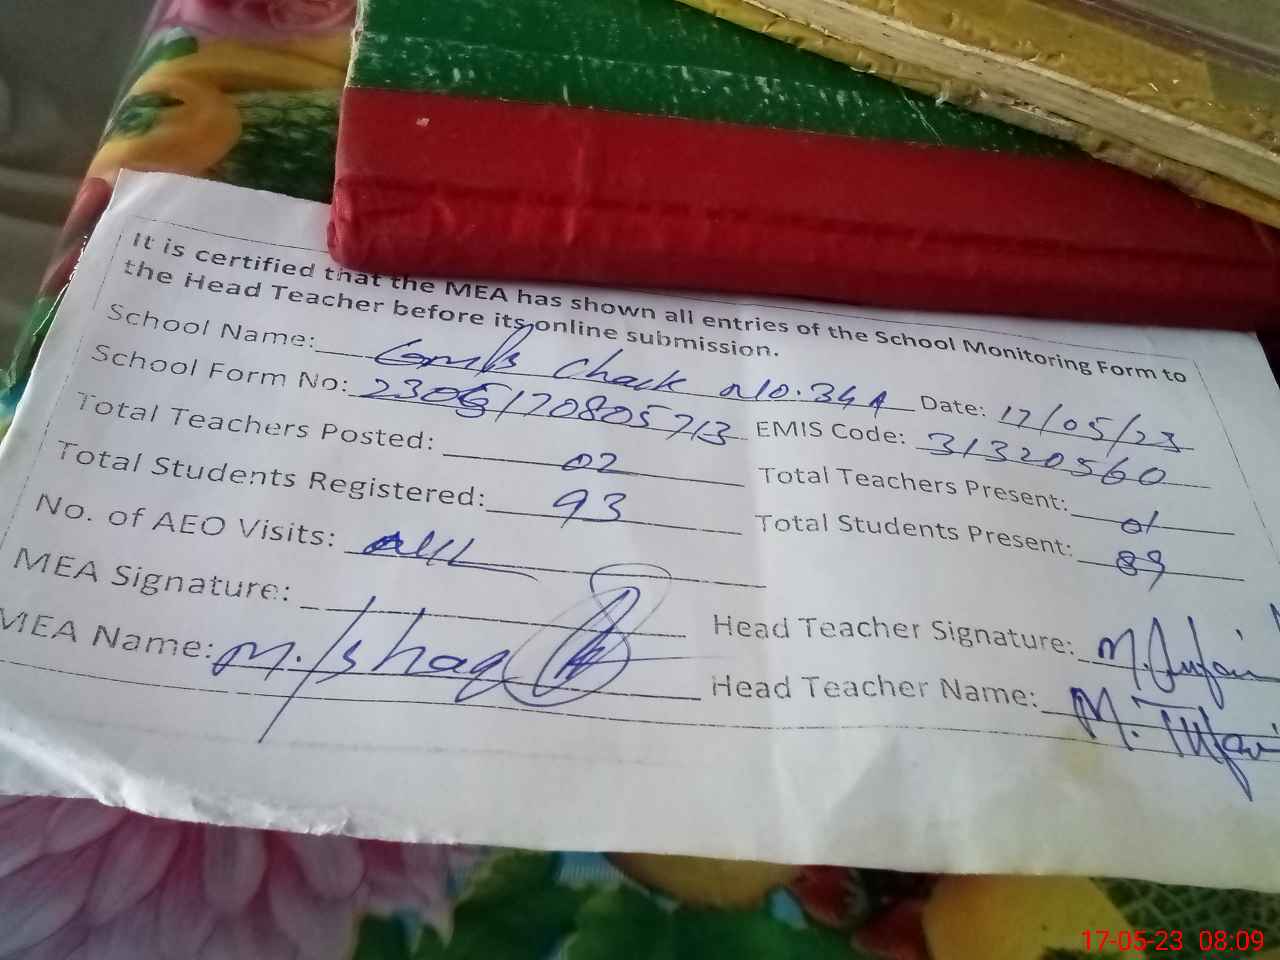 It is certified that the MEA has shown all entries of the School Monitoring Form to
the Head Teacher before its online submission.
School Name: Gmps Chack No. 34A Date: 17/05/23
School Form No: 2305170805713 EMIS Code: 31320560
Total Teachers Posted: 02 Total Teachers Present: 01
Total Students Registered: 93 Total Students Present: 89
No. of AEO Visits: Nill
MEA Signature: Head Teacher Signature:
MEA Name: M. Ishaq Head Teacher Name: M. Tufai
17-05-23 08:09